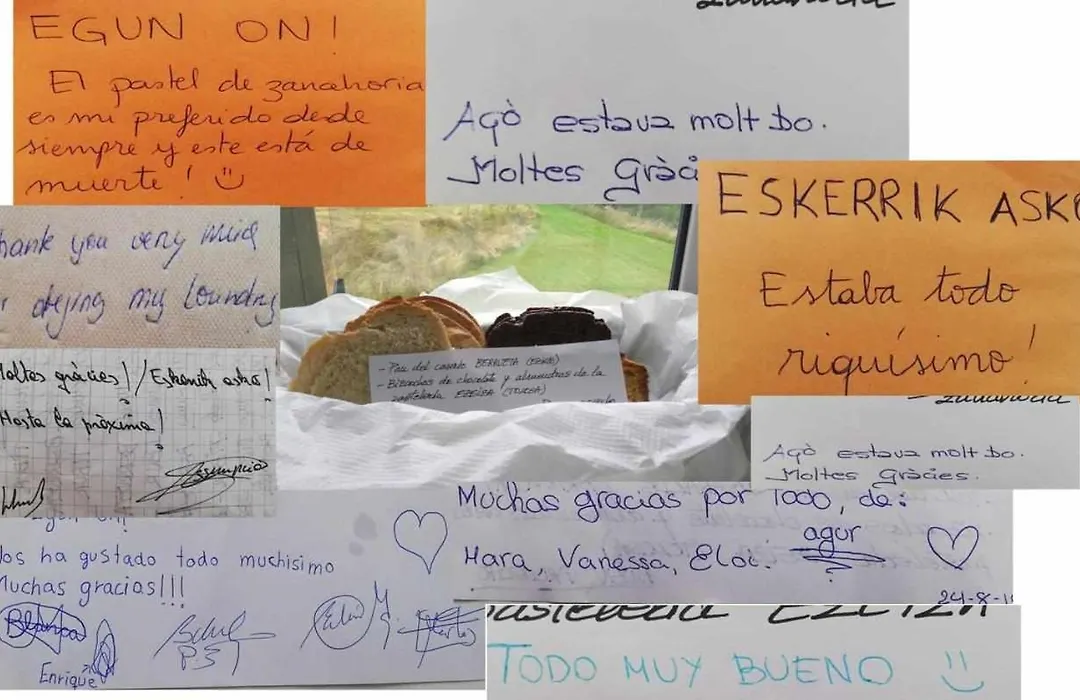 EGUN ON!
El pastel de zanahoria
es mi preferido desde
siempre y este está de
muerte!
Açò estava molt bo.
Moltes Gràci
ESKERRIK ASKO
Estaba todo
riquísimo!
hank you very
drying my loundry
- Pan del caserío BERRUETA
- Bizcochos de chocolate y almendras de la
pastelería
oltes gràcies! / Eskerrik asko!
Hasta la pròxima!
Açò estava molt bo.
Moltes Gràcies.
Muchas gracias por todo, de:
Mara, Vanessa, Eloi. agur
24-8-1
Egun on!
os ha gustado todo muchisimo
Muchas gracias!!!
Blanca
Enrique
TODO MUY BUENO